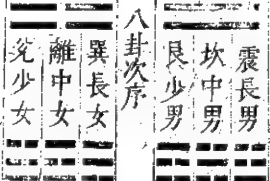 震長男
坎中男
艮少男
八卦次序
巽長女
離中女
兌少女